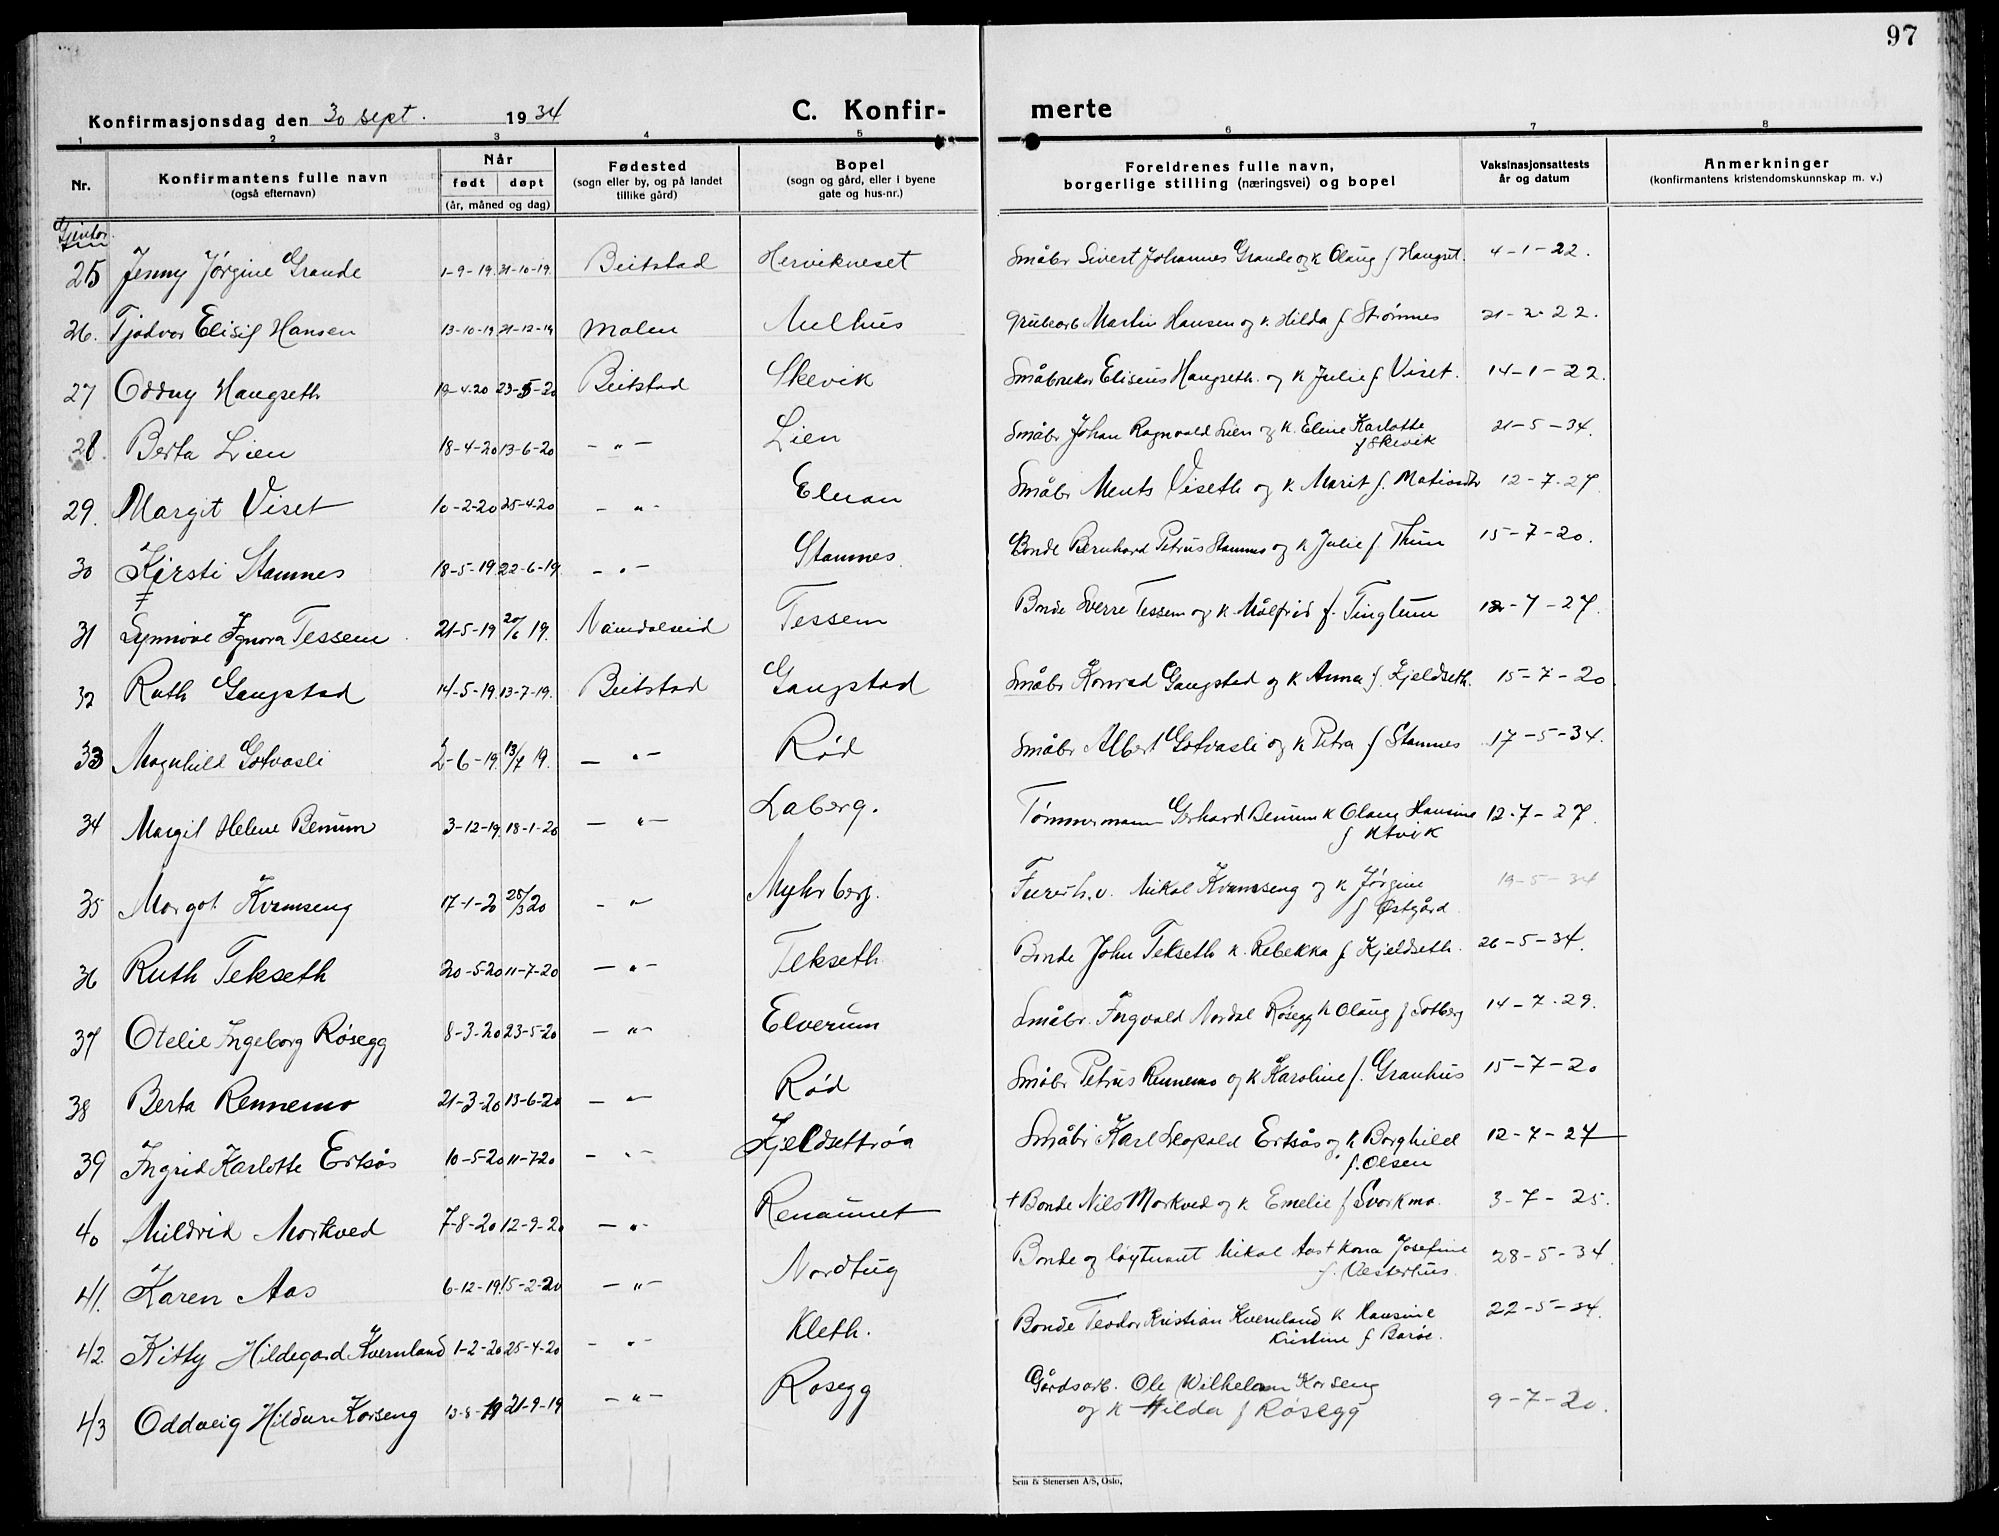 97
Konfirmasjonsdag den 30 sept. 1934 C. Konfir- merte
1 2 3 4 5 6 7 8
Nr.
Konfirmantens fulle navn
(også efternavn)
Når
født døpt
(år, måned og dag)
Fødested
(sogn eller by, og på landet
tillike gård)
Bopel
(sogn og gård, eller i byene
gate og hus-nr.)
Foreldrenes fulle navn,
borgerlige stilling (næringsvei) og bopel
Vaksinasjonsattests
år og datum
Anmerkninger
(konfirmantens kristendomskunnskap m. v.)
25 Jenny Jørgine Grande 1-9-19 21-10-19 Beitstad Hervikneset Småbr Sivert Johannes Grande og k Olaug f 4-1-22.
26. Tjodvor Elisif Hansen 13-10-19 21-12-19 Malm Melhus Grubearb Martin Hansen og k. Hilda f Strømnes 21-2-22.
27 Oddny Haugseth 19-4-20 23-5-20 Beitstad Skevik Småbruker Eliseus Haugseth og k Julie f Viset. 14-1-22.
28. Berta Lien 18-4-20 13-6-20 - " - Lien Småbr Johan Ragnvald Lien og k. Eline Karlotte 21-5-34.
f Skevik
29. Margit Viset 10-2-20 25-4-20 - " - Elnan Småbr Ments Viseth og k Marit f. 12-7-27.
30 Kirsti Stamnes 18-5-19 22-6-19 - " - Stamnes Bonde Bernhard Petrus Stamnes og k Julie f. Thun 15-7-20.
31 Synnøve Ignora Tessem 21-5-19 20/6 19. Namdalseid Tessem Bonde Sverre Tessem og k. Målfrid f. Tinglum 12-7-27.
32 Ruth Gangstad 14-5-19 13-7-19. Beitstad Gangstad Småbr Konrad Gangstad og k Anna f. Kjeldseth. 15-7-20
33 Magnhild Gotvasli 2-6-19 13/7 19. - " - Rød Småbr Albert Gotvasli og k Petra f Stamnes 17-5-34.
34 Margit Helene Benum 3-12-19 18-1-20 - " - Laberg. Tømmermann Gerhard Benum k Olaug Hansine 12-7-27.
f Utvik
35 Margot Kvamseng 17-1-20 25/3 20 - " - Myhrberg. Mikal Kvamseng og k Jørgine 19-5-34
f Østgård.
36 Ruth Tekseth 20-5-20 11-7-20 - " - Tekseth Bonde John Tekseth k. Rebekka f. Kjeldseth. 26-5-34.
37 Otelie Ingeborg Røsegg 8-3-20 23-5-20 - " - Elverum Småbr. Ingvald Nordal Røsegg k Olaug f Solberg 14-7-29.
38 Berta Rennemo 21-3-20 13-6-20 - " - Rød Småbr Petrus Rennemo og k Karoline f. Granhus 15-7-20
39 Ingrid Karlotte Ertsås 10-5-20 11-7-20 - " - Kjeldsettrøa Småbr Karl Leopold Ertsås og k Borghild 12-7-27
f. Olsen
40 Mildrid Morkved 7-8-20 12-9-20 - " - + Bonde Nils Morkved og k Emelie f Svorkmo. 3-7-25.
41. Karen Aas 6-12-19 15-2-20 - " - Nordtug Bonde og løytnant Mikal Aas + kona Josefine 28-5-34
f. Vesterhus.
42 Kitty Hildegard Kvernland 1-2-20 25-4-20 - " - Kleth. Bonde Teodor Kristian Kvernland k Hansine 22-5-34.
Kristine f Barøe.
43 Oddveig Korseng 13-8-19 21-9-19 - " - Rosegg Gårdsarb. Ole Wilhelm Korseng 9-7-20.
og k Hilda f Røsegg
Sem & Stenersen A/S, Oslo.